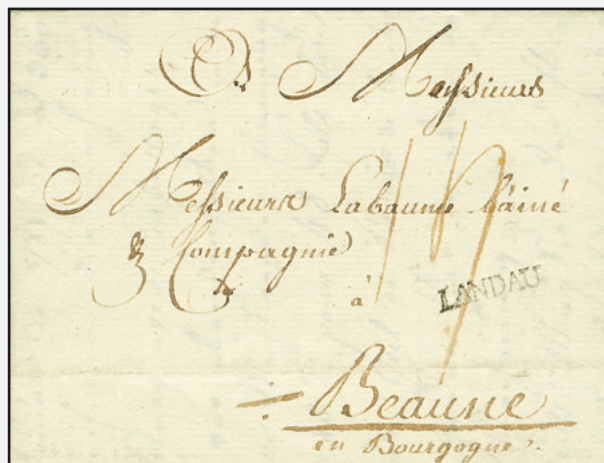 A Messieurs
Messieurs Labaume l'ainé
& Compagnie
à
LANDAU
Beaune
en Bourgogne.